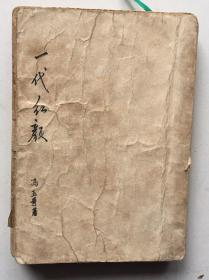 一代红颜
冯玉奇著